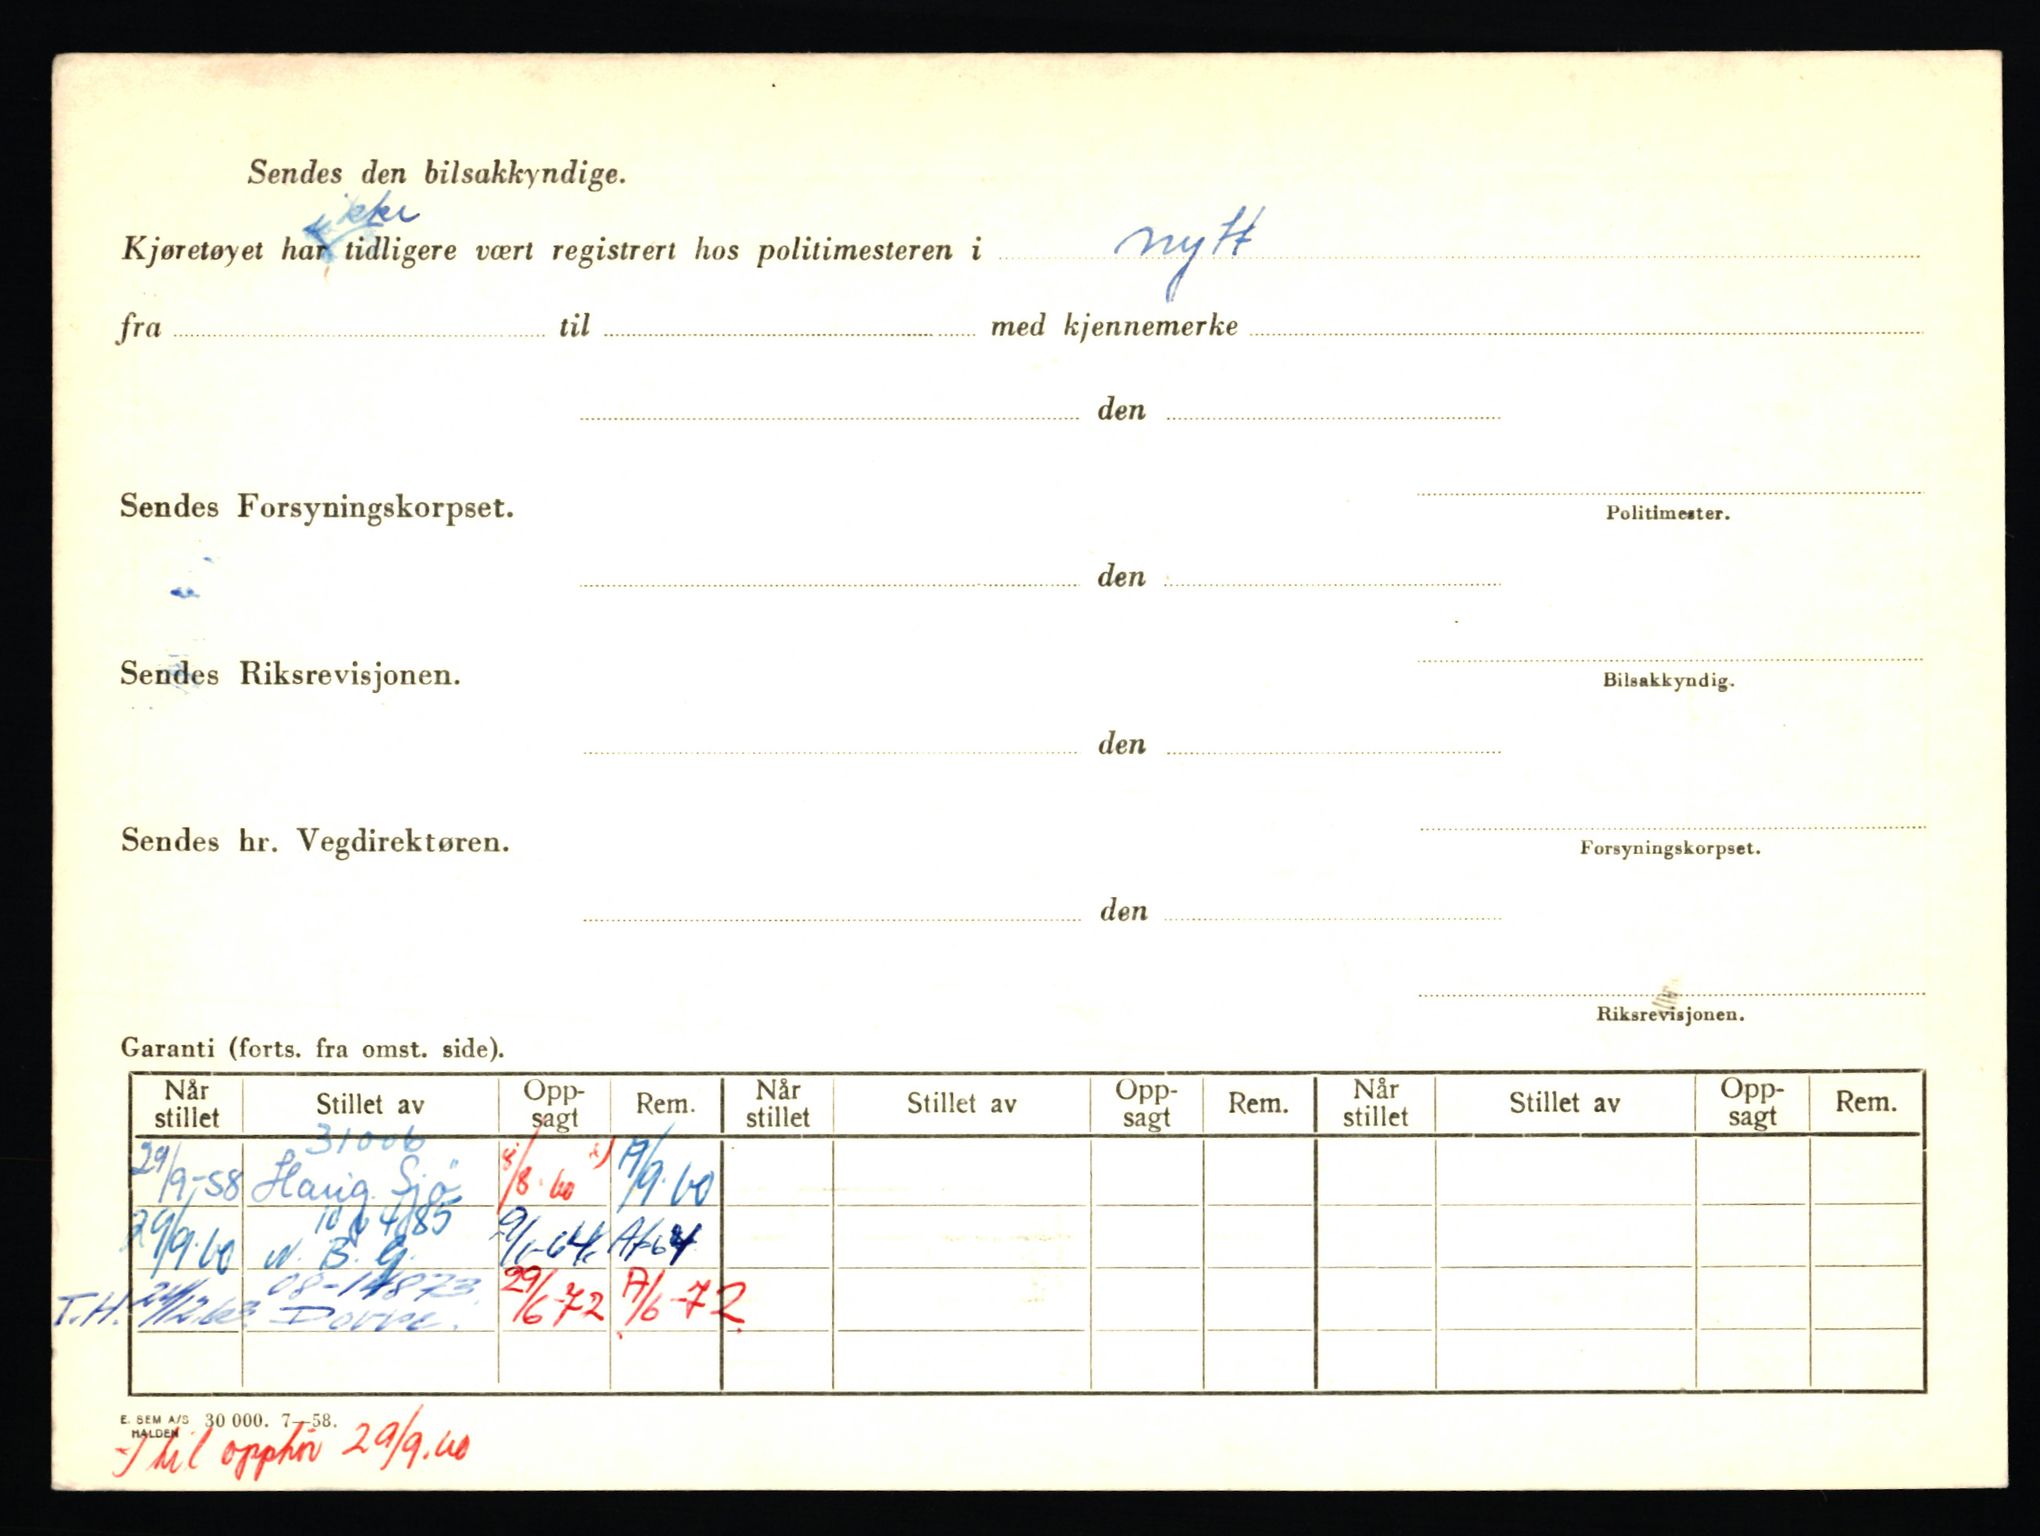 Sendes den bilsakkyndige.
ikke
Kjøretøyet har tidligere vært registrert hos politimesteren i nytt
fra til med kjennemerke
den
Sendes Forsyningskorpset.
Politimester.
den
Sendes Riksrevisjonen.
Bilsakkyndig.
den
Sendes hr. Vegdirektøren.
Forsyningskorpset.
den
Riksrevisjonen.
Garanti (forts. fra omst. side).
Når stillet Stillet av Opp-sagt Rem. Når stillet Stillet av Opp-sagt Rem. Når stillet Stillet av Opp-sagt Rem.
31006
29/9-58 Haug. Sjø /8.60 A/9.60
29/9.60 N. B. G.
T.H. Dovre. 29/6-72 A/6-72
E. SEM A/S 30 000. 7—58.
HALDEN
til opphør 29/9.60